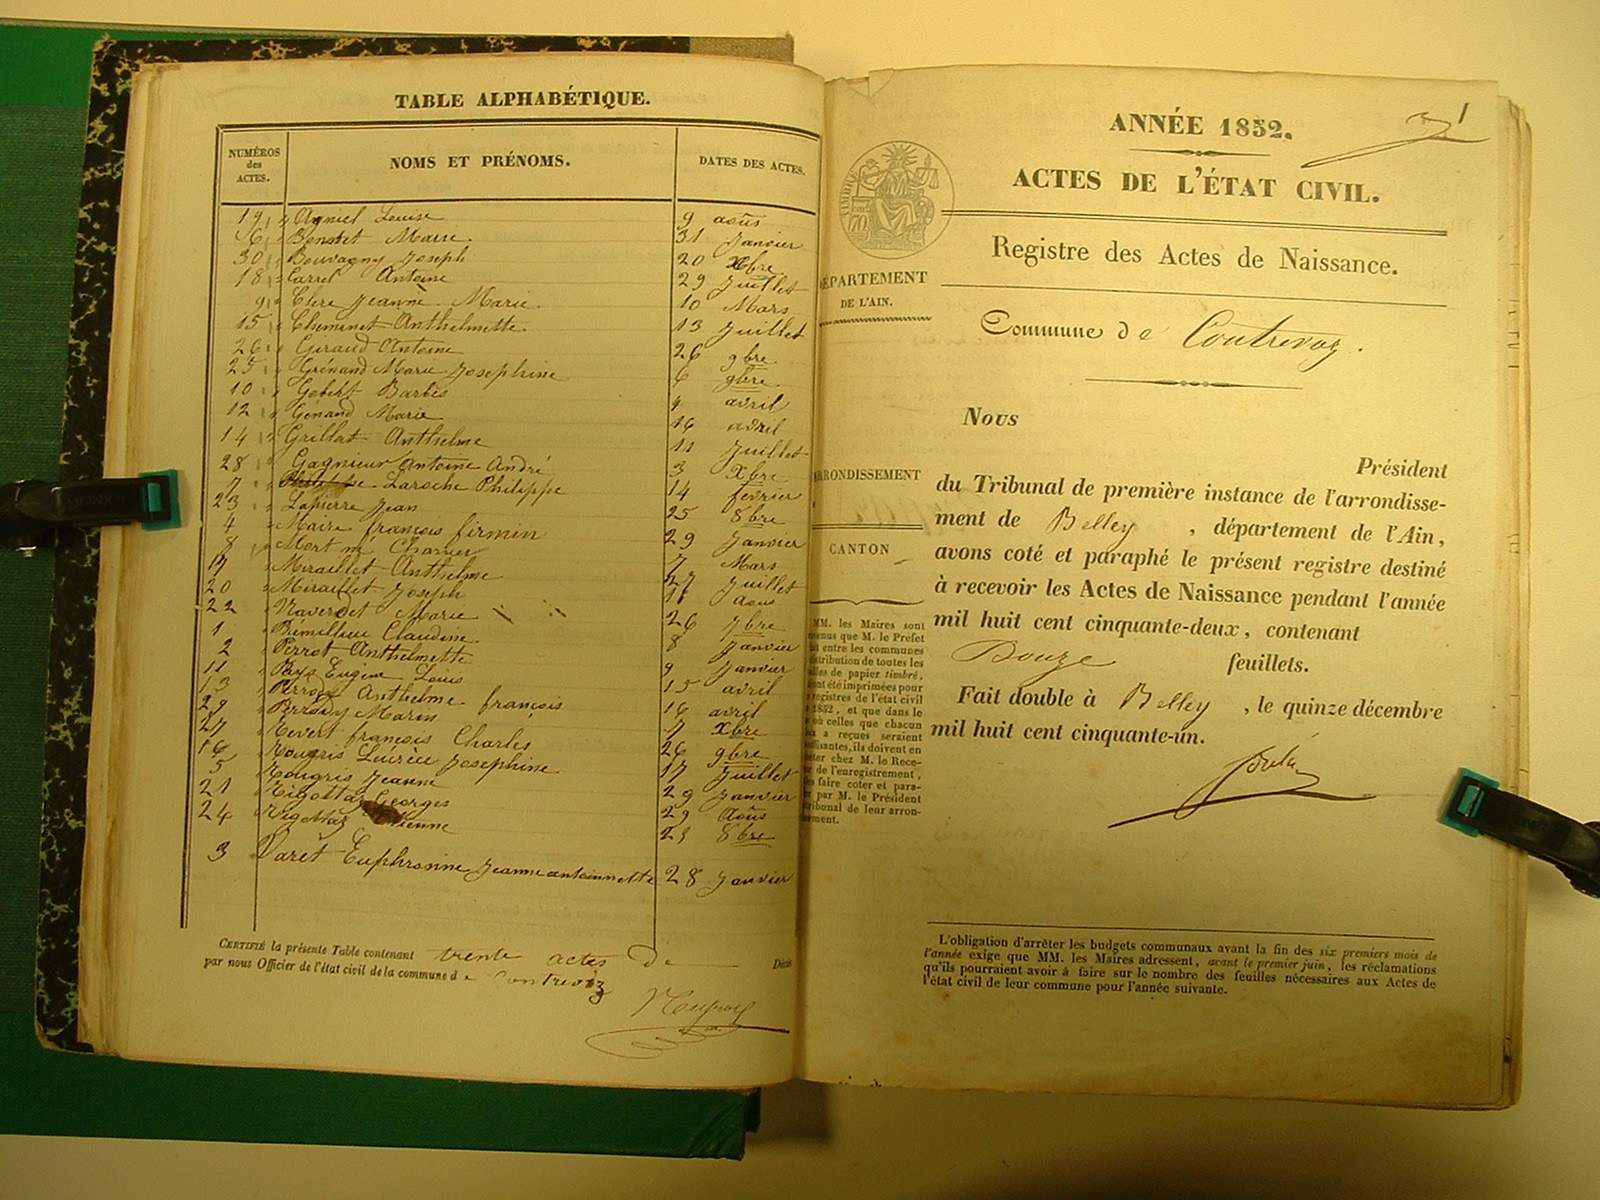 TABLE ALPHABÉTIQUE.
NUMÉROS des ACTES. NOMS ET PRÉNOMS. DATES DES ACTES.
19 Agniel Louise 9 août
6 Marie 31 Janvier
30 Bouvagny Joseph 20 Xbre
18 Carrel Antoine 29 Juillet
9 Clerc Jeanne Marie 10 Mars
15 Cheminet Anthelmette 13 Juillet
26 Giraud Antoine 26 9bre
25 Grénand Marie Josephine 6 9bre
10 Gobert Barbe avril
12 Genand Marie 16 avril
14 Grillat Anthelme 11 Juillet
28 Gagnieur Antoine André 3 Xbre
7 Laroche Philippe 14 février
23 Lapierre Jean 25 8bre
4 Maire françois firmin 29 Janvier
8 Mort né Charrier 7 Mars
17 Miraillet Anthelme 27 Juillet
20 Miraillet Joseph
22 Marie 26 7bre
1 Claudine 8 Janvier
2 Perrot Anthelmette 9 Janvier
11 Eugène Louis 15 avril
13 Anthelme françois 16 avril
29 7 Xbre
27 Revert françois Charles 26 9bre
16 Rougris Josephine 17 Juillet
5 Rougris Jeanne 29 Janvier
21 Rigottaz Georges 29 Août
24 Rigottaz Etienne 8bre
3 Varet Euphrosine Jeanne antoinnette 28 Janvier
CERTIFIÉ la présente Table contenant trente actes de
par nous Officier de l'état civil de la commune de Contrevoz
1
ANNÉE 1852.
ACTES DE L'ÉTAT CIVIL.
TIMBRE
70
Registre des Actes de Naissance.
DÉPARTEMENT
DE L'AIN.
Commune de Contrevoz.
ARRONDISSEMENT
CANTON
Nous
Président
du Tribunal de première instance de l'arrondisse-
ment de Belley, département de l'Ain,
avons coté et paraphé le présent registre destiné
à recevoir les Actes de Naissance pendant l'année
mil huit cent cinquante-deux, contenant
Douze feuillets.
Fait double à Belley, le quinze décembre
mil huit cent cinquante-un.
MM. les Maires sont
que M. le Préfet
entre les communes
distribution de toutes les
de papier timbré,
ont été imprimées pour
registres de l'état civil
1852, et que dans le
où celles que chacun
a reçues seraient
ils doivent en
chez M. le Rece-
de l'enregistrement,
faire coter et para-
par M. le Président
tribunal de leur arron-
L'obligation d'arrêter les budgets communaux avant la fin des six premiers mois de
l'année exige que MM. les Maires adressent, avant le premier juin, les réclamations
qu'ils pourraient avoir à faire sur le nombre des feuilles nécessaires aux Actes de
l'état civil de leur commune pour l'année suivante.